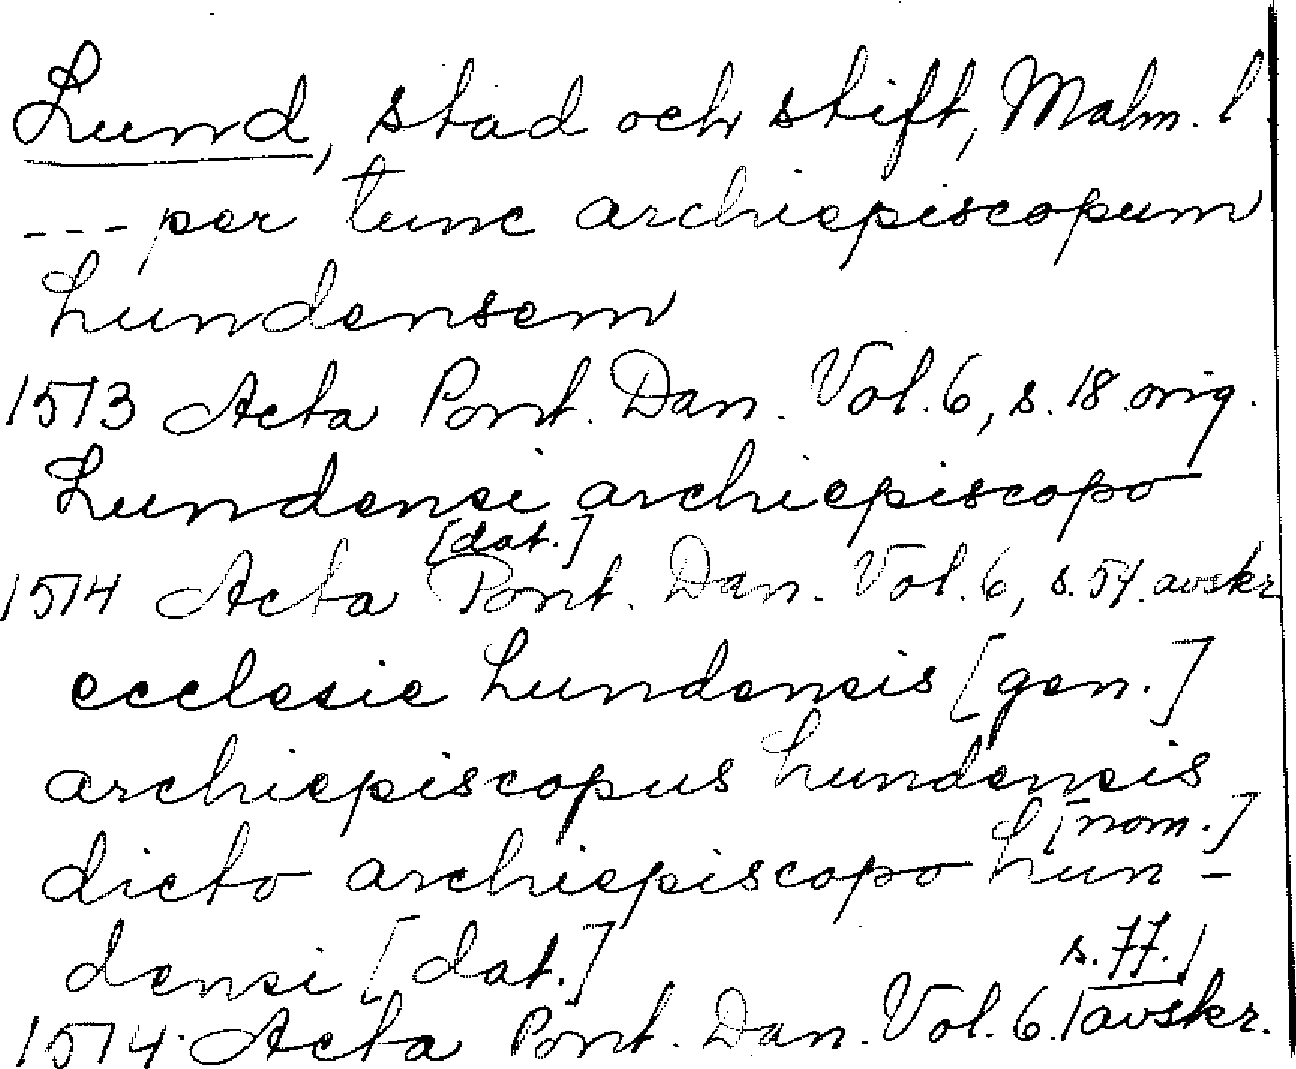 Lund, stad och stift, Malm. l.
--- per tunc archiepiscopum
Lundensem
1513 Acta Pont. Dan. Vol. 6, s. 18 orig.
Lundensi archiepiscopo
[dat.]
1514 Acta Pont. Dan. Vol. 6, s. 54. avskr.
ecclesie Lundensis [gen.]
archiepiscopus Lundensis
[nom.]
dicto archiepiscopo Lun-
densi [dat.]
s. 77.
1514. Acta Pont. Dan. Vol. 6. avskr.